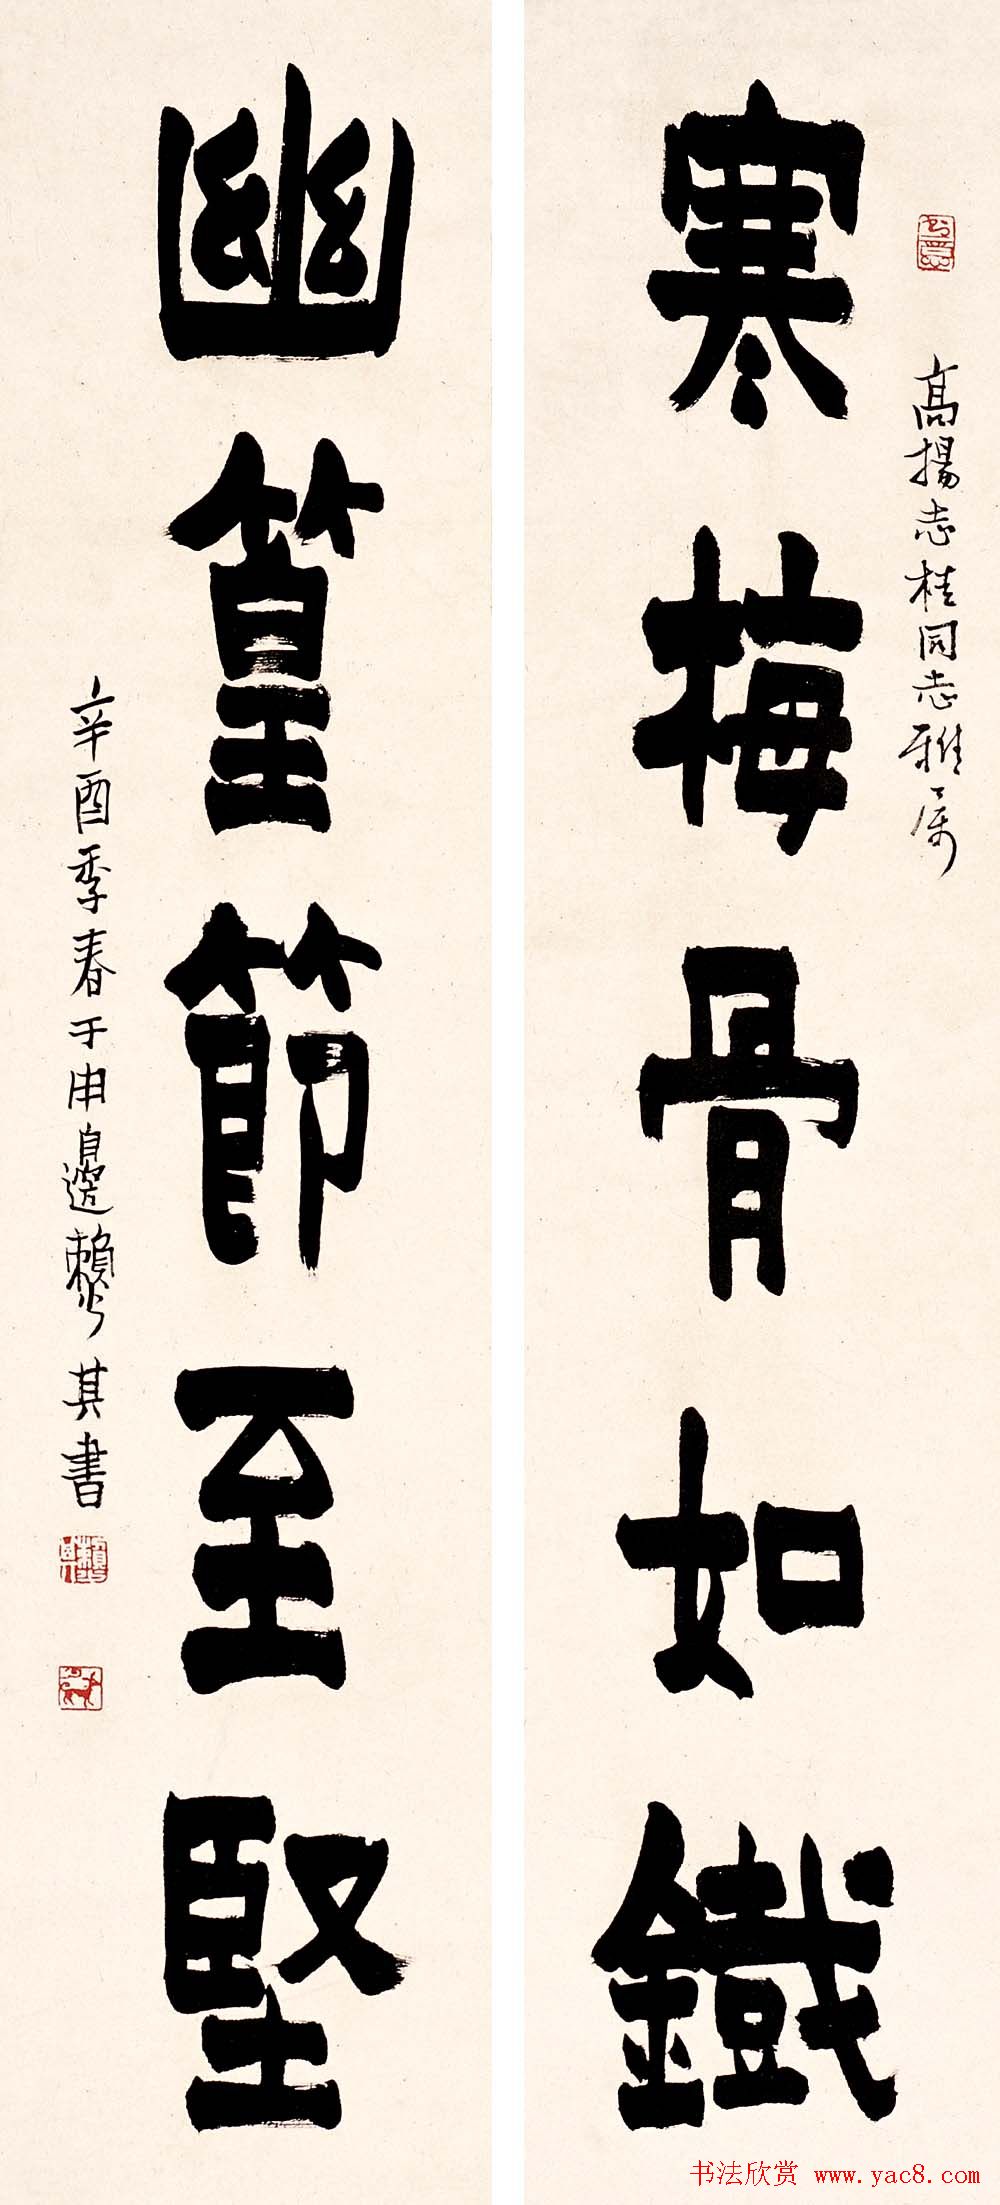 高揚志桂同志雅属
寒梅骨如鐵
幽篁節至堅
辛酉季春于申邊賴少其書
书法欣赏 www.yac8.com